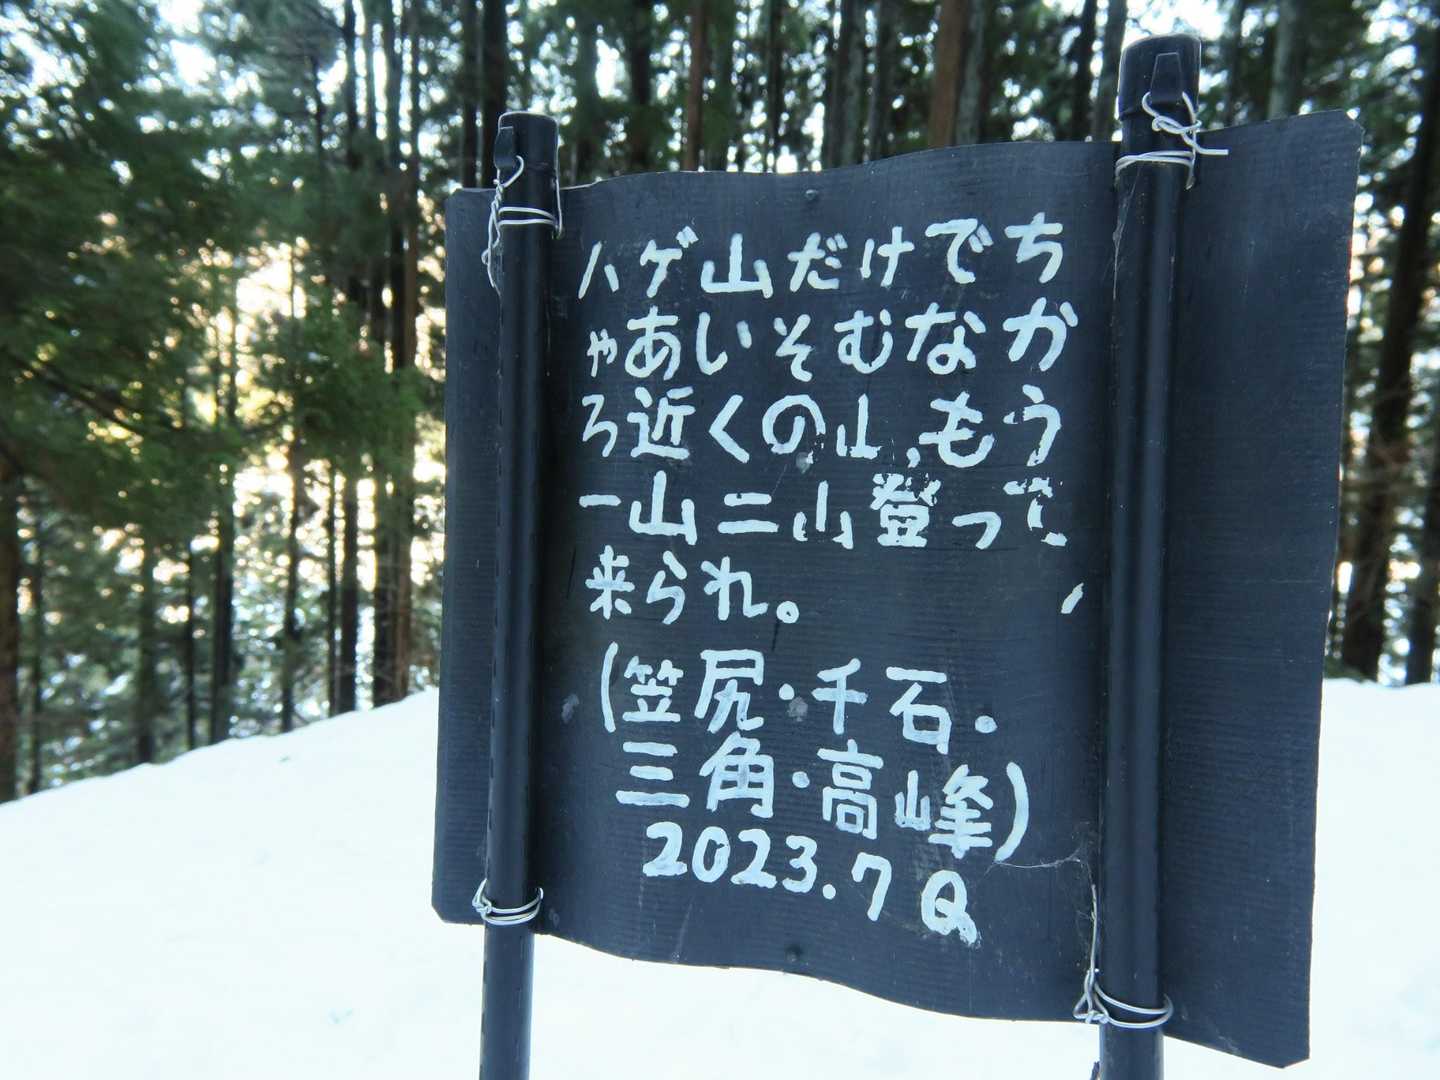 ハゲ山だけでち
ゃあいそむなか
ろ近くの山、もう
一山二山登って
来られ。
(笠尻・千石・
三角・高峰)
2023.7 Q